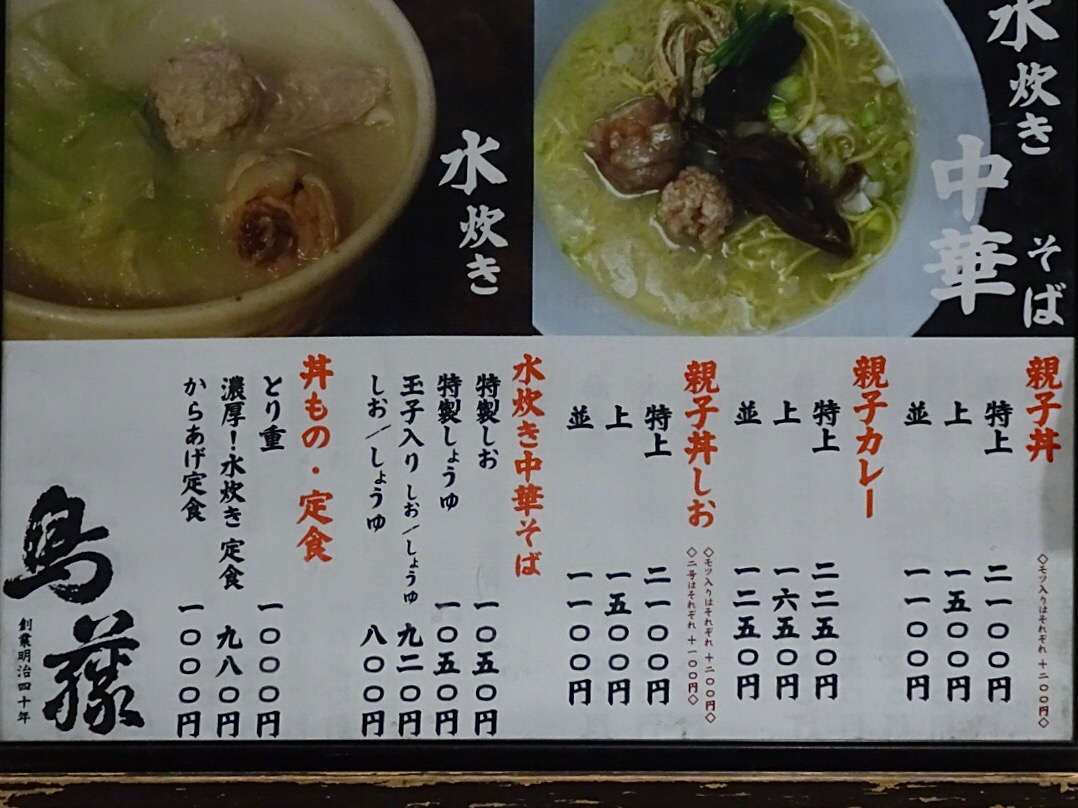 水炊き
中華
そば
水炊き
親子丼
◇モツ入りはそれぞれ+二〇〇円◇
特上 二一〇〇円
上 一五〇〇円
並 一一〇〇円
親子カレー
特上 二二五〇円
上 一六五〇円
並 一二五〇円
親子丼しお
◇モツ入りはそれぞれ+二〇〇円◇
◇二号はそれぞれ+一〇〇円◇
特上 二一〇〇円
上 一五〇〇円
並 一一〇〇円
水炊き中華そば
特製しお 一〇五〇円
特製しょうゆ 一〇五〇円
玉子入り しお/しょうゆ 九二〇円
しお/しょうゆ 八〇〇円
丼もの・定食
とり重 一〇〇〇円
濃厚!水炊き 定食 九八〇円
からあげ定食 一〇〇〇円
鳥藤
創業明治四十年